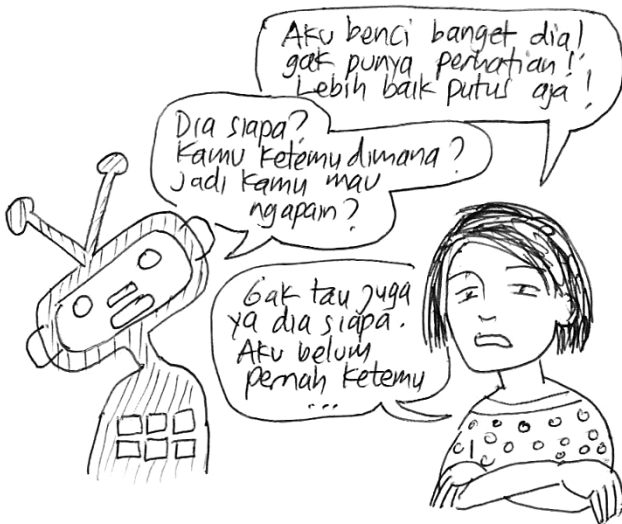 Aku benci banget dia!
gak punya perhatian!
Lebih baik putus aja!
Dia siapa?
Kamu ketemu dimana?
Jadi kamu mau
ngapain?
Gak tau juga
ya dia siapa.
Aku belum
pernah ketemu
...